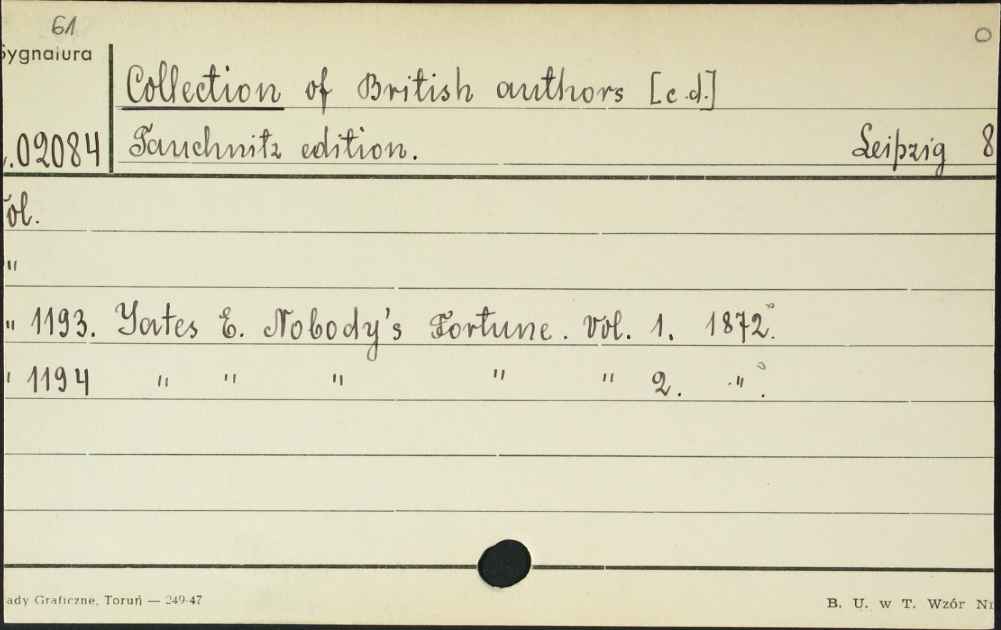 61
Sygnatura
Collection of British authors [c.d.]
.02084 Tauchnitz edition. Leipzig 8
Vol.
"
" 1193. Yates E. Nobody's Fortune. Vol. 1. 1872.
" 1194 " " " " " 2. "
ady Graficzne, Toruń — 249-47 B. U. w T. Wzór Nr